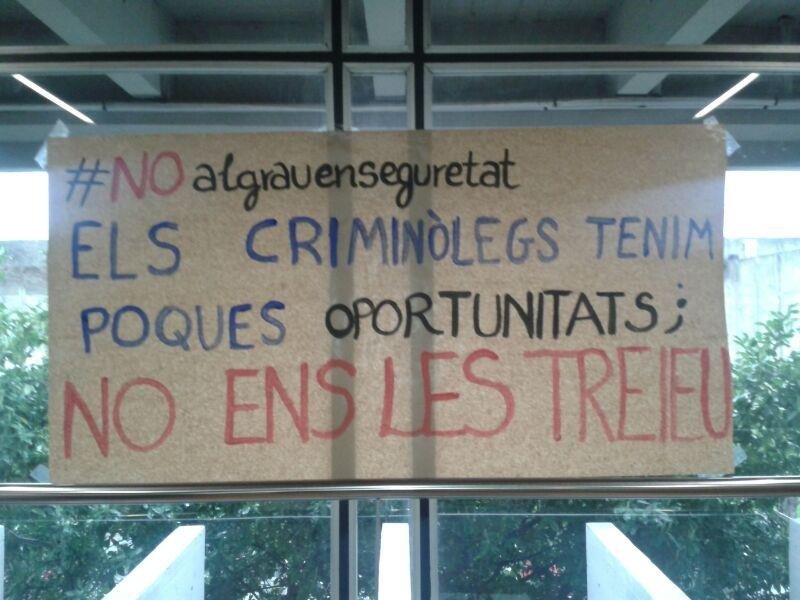 #NOalgrauenseguretat
ELS CRIMINÒLEGS TENIM
POQUES OPORTUNITATS;
NO ENS LES TREIEU